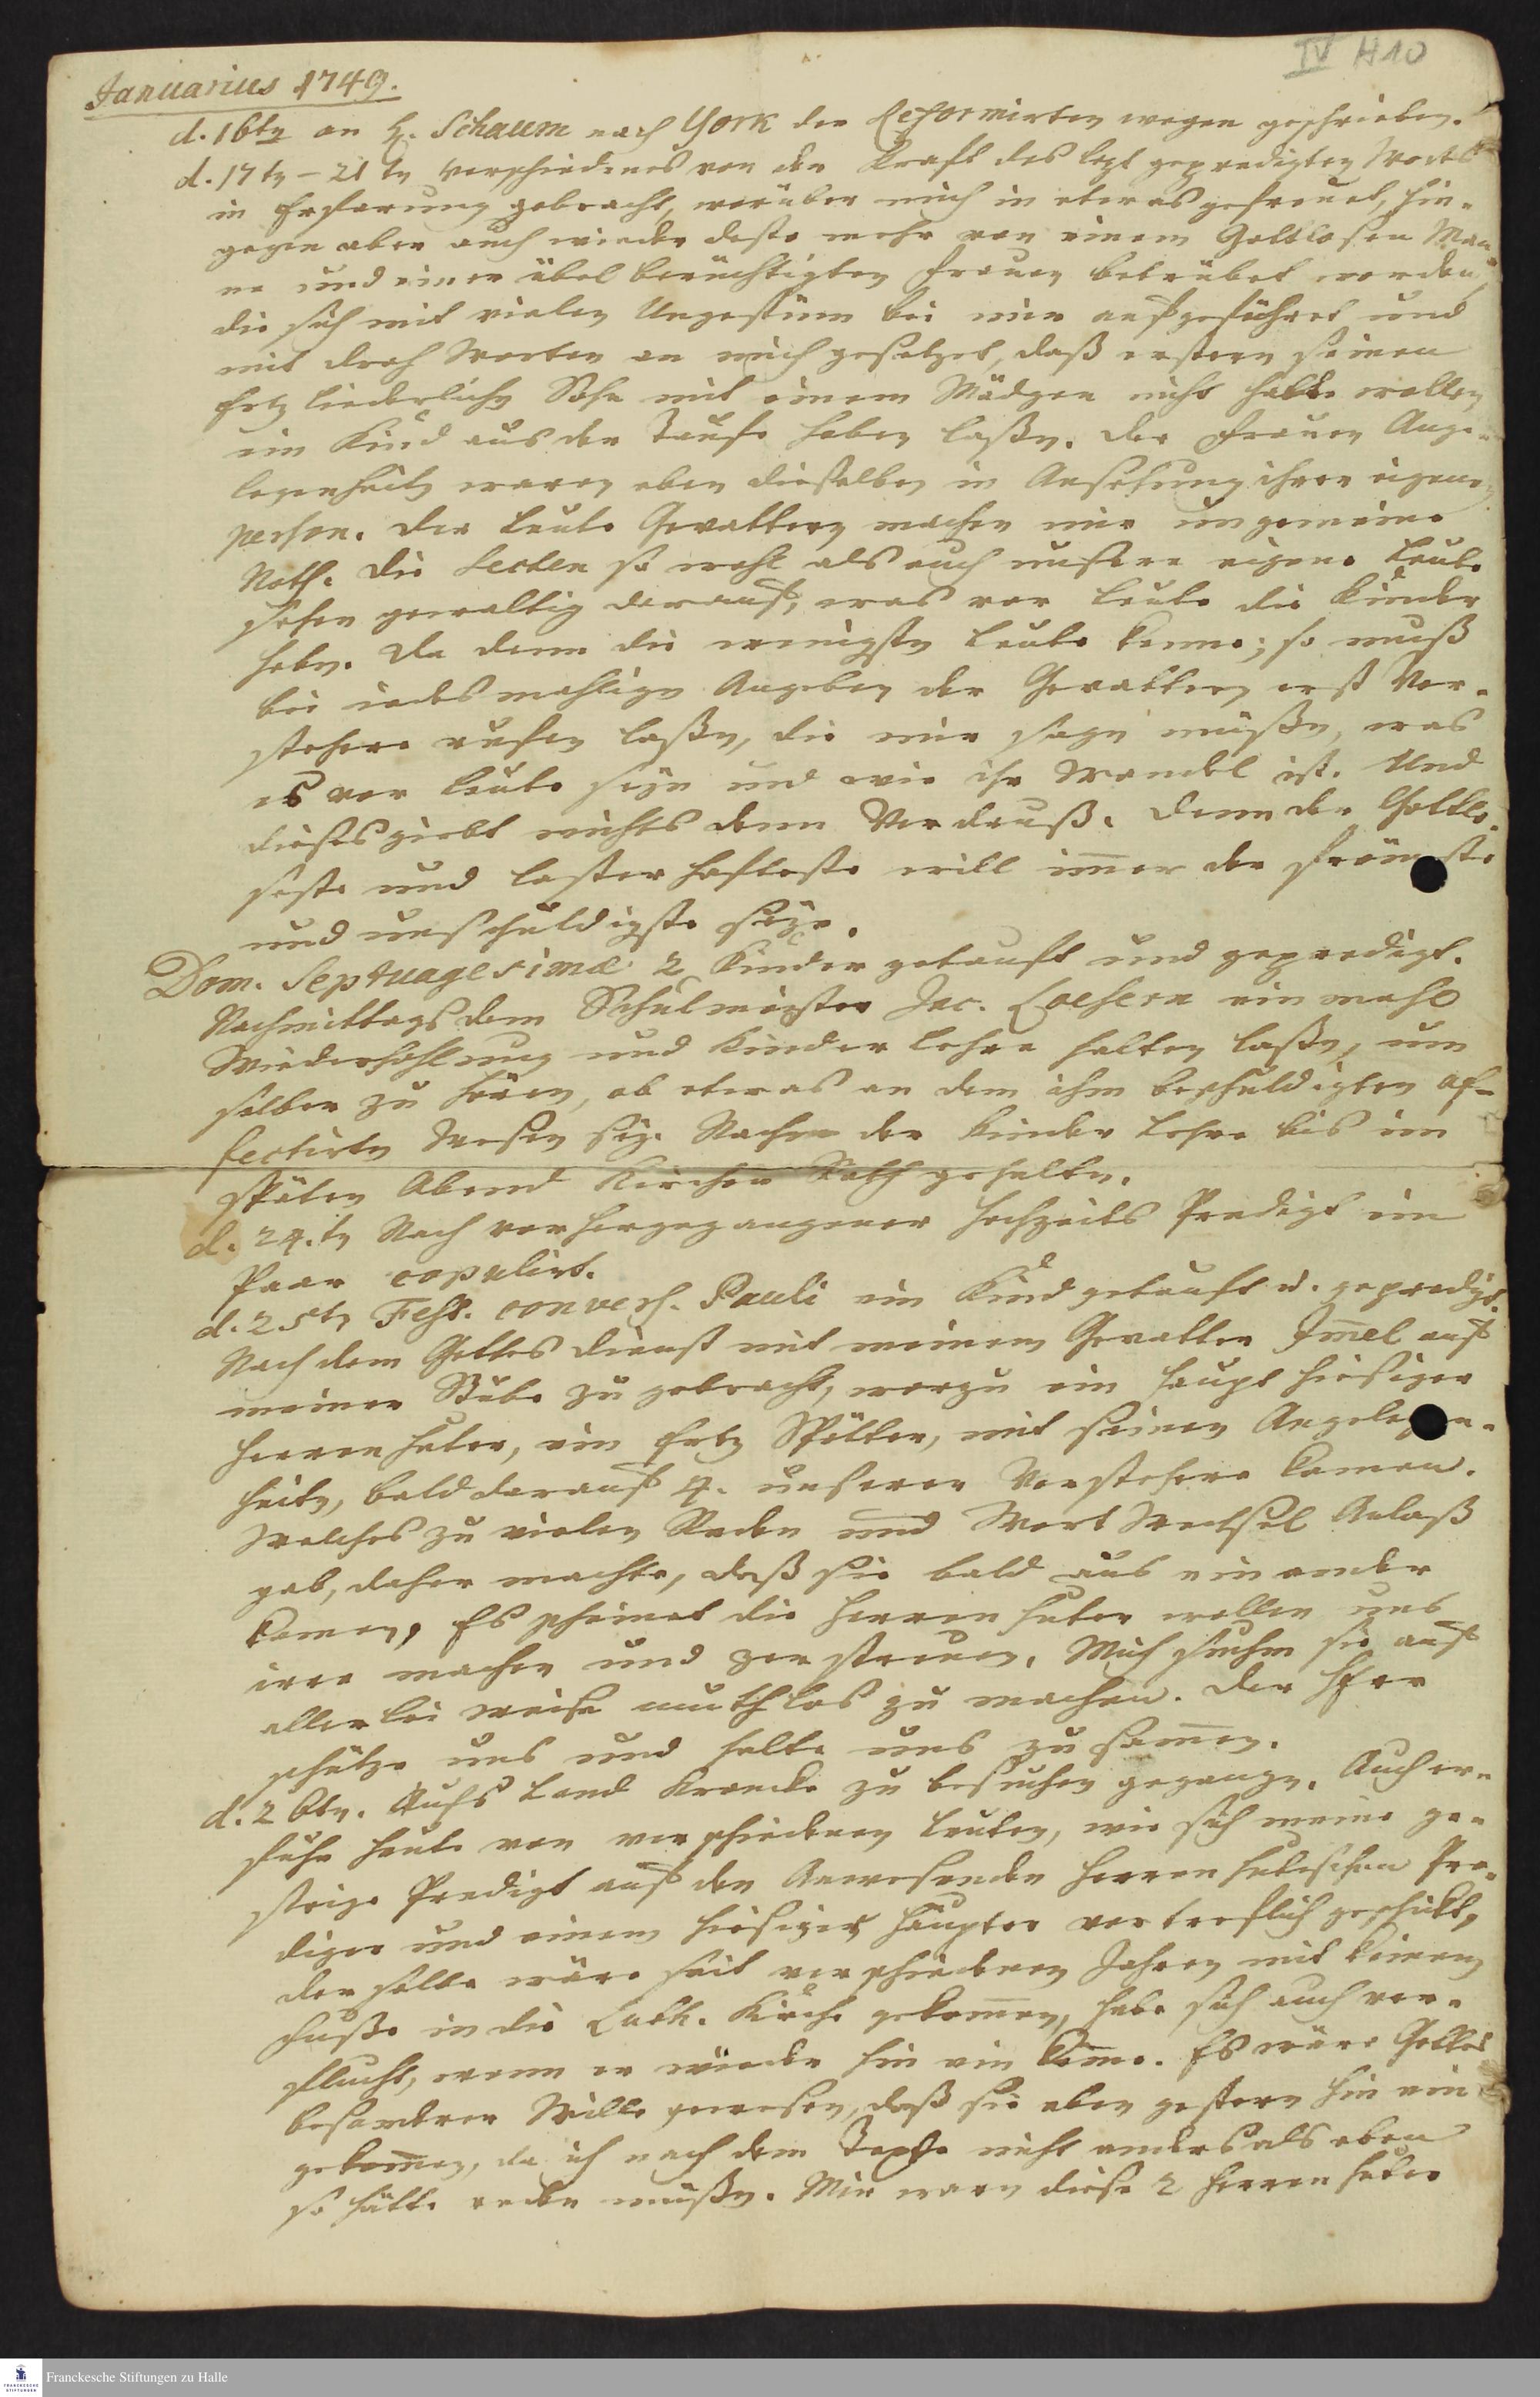 IV H10
Januarius 1749.
d. 16tn an H. Schaum nach York der Reformirten wegen geschrieben.
d. 17tn - 21tn verschiedenes von der Kraft des lezt gepredigten Worts
in Erfarung gebracht, worüber mich in etwas gefreuet, hin-
gegen aber auch wieder desto mehr von einem Gottlosen Man-
ne und einer übel berüchtigten Frauen betrübet worden,
die sich mit vielen Ungestüm bei mir aufgeführet und
mit droh Worten an mich gesetzet, daß erstern seinen
Ertz liederlichn Sohn mit einem Mädgen nicht hatte wollen
ein Kind aus der Taufe heben laßn. Der Frauen Ange-
legenheitn waren eben dieselben in Ansehung ihrer eigenen
person. Der Leute Gevattern machen mir ungemeine
Noth. Die Secten so wohl als auch unsere eigene Leute
sehen gewaltig darauf, was vor Leute die Kinder
hebn. Da denn die wenigstn Leute kenne; so muß
bei iedesmahlign Angeben der Gevattern erst Vor-
stehere rufen laßn, die mir sagn müßn, was
es vor Leute seÿn und wie ihr Wandel ist. Und
dieses giebt nichts denn Verdruß. Denn der Gottlo-
seste und lasterhafteste will im̄er der frömste
und unschuldigste seÿn.
Dom. Septuagesimæ 2 Kinder getauft und gepredigt.
Nachmittags dem Schulmeister Jac. Loesern ein mahl
Wiederhohlung und Kinder Lehre halten laßn, um
selber zu hören, ob etwas an dem ihm beschuldigten af-
fectirtn Wesen seÿ. Nach der Kinder Lehre bis im
späten Abend Kirchen Rath gehaltn.
d. 24.tn Nach vorhergegangener Hochzeits Predigt ein
Paar copulirt.
d. 25tn Fest. convers. Pauli ein Kind getauft u. gepredigt.
Nach dem Gottesdienst mit meinem Gevatter Im̄el auf
meiner Stube zu gebracht, worzu ein Haupt hiesiger
Herrenhuter, ein Ertz Spötter, mit seinen Angelegen-
heitn, bald darauf 4. unserer Vorstehere kamen.
Welches zu vielen Reden und Wort Wechsel Anlaß
gab, daher machte, daß sie bald aus einander
kamen, Es scheinet die Herrenhuter wollen uns
irre machen und zerstreuen. Mich suchen sie auf
allerlei weise muthlos zu machen. Der HErr
schütze uns und halte uns zu sam̄en.
d. 26tn. Aufs Land Krancke zu besuchen gegangn. Auch er-
fuhr heute von verschiedenen Leuten, wie sich meine ge-
strige Predigt auf den Anwesenden Herrenhutischen Pre-
diger und einem hiesiger Häupter vortreflich geschickt,
derselbe wäre seit verschiednen Jahren mit keinem
Fuße in die Luth. Kirche gekom̄en, habe sich auch ver-
flucht, wenn er wieder hin ein käme. Es wäre Gottes
besonderer Wille gewesen, daß sie eben gestern hin ein
gekom̄en, da ich nach dem Texte nicht anders als eben
so hätte reden müßn. Mir waren diese 2 Herrenhuter
Franckesche Stiftungen zu Halle